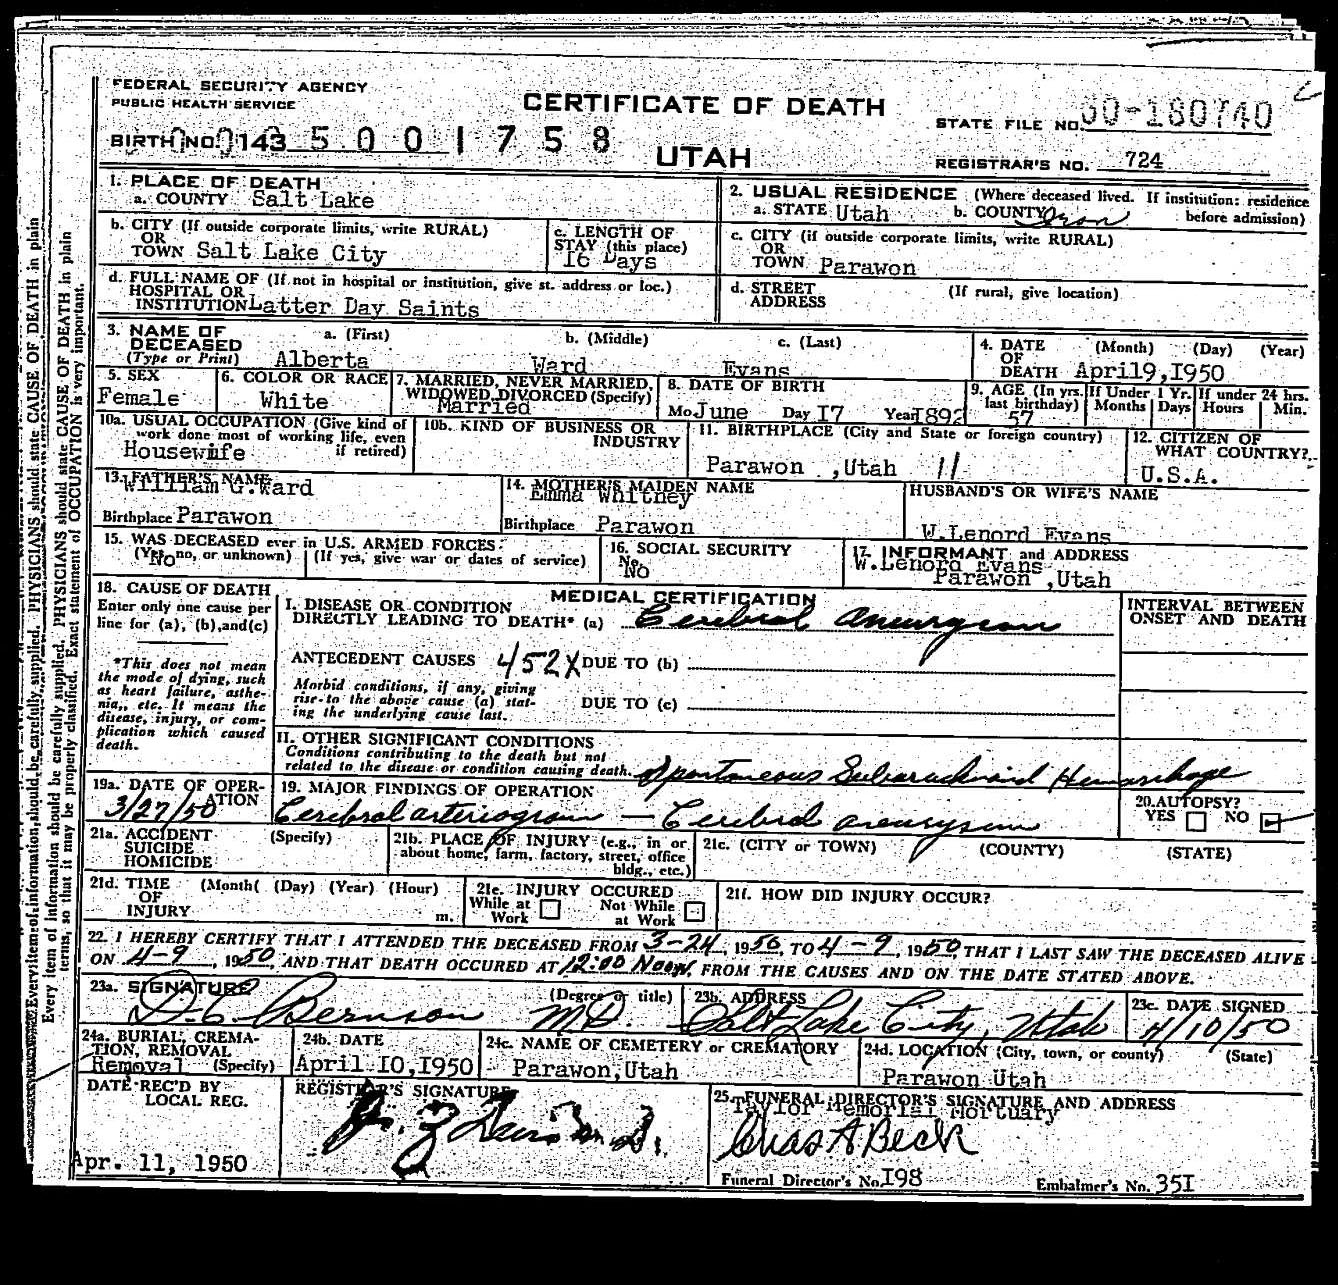 FEDERAL SECURITY AGENCY
PUBLIC HEALTH SERVICE
CERTIFICATE OF DEATH
UTAH
BIRTH NO. 143 5 0 0 1 7 5 8
STATE FILE NO. 50-180740
REGISTRAR'S NO. 724
1. PLACE OF DEATH
a. COUNTY Salt Lake
2. USUAL RESIDENCE (Where deceased lived. If institution: residence before admission)
a. STATE Utah b. COUNTY Iron
b. CITY (If outside corporate limits, write RURAL)
OR
TOWN Salt Lake City
c. LENGTH OF
STAY (this place)
16 Days
c. CITY (if outside corporate limits, write RURAL)
OR
TOWN Parawon
d. FULL NAME OF (If not in hospital or institution, give st. address or loc.)
HOSPITAL OR
INSTITUTION Latter Day Saints
d. STREET (If rural, give location)
ADDRESS
3. NAME OF
DECEASED
(Type or Print)
a. (First) b. (Middle) c. (Last)
Alberta Ward Evans
4. DATE (Month) (Day) (Year)
OF
DEATH April9,1950
5. SEX
Female
6. COLOR OR RACE
White
7. MARRIED, NEVER MARRIED,
WIDOWED, DIVORCED (Specify)
Married
8. DATE OF BIRTH
Mo June Day 17 Year 1892
9. AGE (In yrs. last birthday)
57
If Under 1 Yr.
Months Days
If under 24 hrs.
Hours Min.
10a. USUAL OCCUPATION (Give kind of
work done most of working life, even
if retired)
Housewife
10b. KIND OF BUSINESS OR
INDUSTRY
11. BIRTHPLACE (City and State or foreign country)
Parawon ,Utah 11
12. CITIZEN OF
WHAT COUNTRY?
U.S.A.
13. FATHER'S NAME
William G.Ward
Birthplace Parawon
14. MOTHER'S MAIDEN NAME
Emma Whitney
Birthplace Parawon
HUSBAND'S OR WIFE'S NAME
W.Lenord Evans
15. WAS DECEASED ever in U.S. ARMED FORCES?
(Yes, no, or unknown) (If yes, give war or dates of service)
No
16. SOCIAL SECURITY
No.
No
17. INFORMANT and ADDRESS
W.Lenord Evans
Parawon ,Utah
18. CAUSE OF DEATH
Enter only one cause per
line for (a), (b), and (c)
*This does not mean
the mode of dying, such
as heart failure, asthe-
nia,, etc. It means the
disease, injury, or com-
plication which caused
death.
MEDICAL CERTIFICATION
I. DISEASE OR CONDITION
DIRECTLY LEADING TO DEATH* (a) Cerebral aneurysm
ANTECEDENT CAUSES 452X DUE TO (b)
Morbid conditions, if any, giving
rise to the above cause (a) stat-
ing the underlying cause last.
DUE TO (c)
INTERVAL BETWEEN
ONSET AND DEATH
II. OTHER SIGNIFICANT CONDITIONS
Conditions contributing to the death but not
related to the disease or condition causing death. Spontaneous Subarachnoid Hemorrhage
19a. DATE OF OPER-
ATION
3/27/50
19. MAJOR FINDINGS OF OPERATION
Cerebral arteriogram — Cerebral aneurysm
20. AUTOPSY?
YES NO
21a. ACCIDENT (Specify)
SUICIDE
HOMICIDE
21b. PLACE OF INJURY (e.g., in or
about home, farm, factory, street, office
bldg., etc.)
21c. (CITY or TOWN) (COUNTY) (STATE)
21d. TIME (Month( (Day) (Year) (Hour)
OF
INJURY m.
21e. INJURY OCCURED
While at Work Not While at Work
21f. HOW DID INJURY OCCUR?
22. I HEREBY CERTIFY THAT I ATTENDED THE DECEASED FROM 3-24, 1950, TO 4-9, 1950, THAT I LAST SAW THE DECEASED ALIVE
ON 4-9, 1950, AND THAT DEATH OCCURED AT 12:00 Noon, FROM THE CAUSES AND ON THE DATE STATED ABOVE.
23a. SIGNATURE (Degree or title)
D.C. Bernson M.D.
23b. ADDRESS
Salt Lake City, Utah
23c. DATE SIGNED
4/10/50
24a. BURIAL, CREMA-
TION, REMOVAL
(Specify)
Removal
24b. DATE
April 10,1950
24c. NAME OF CEMETERY or CREMATORY
Parawon,Utah
24d. LOCATION (City, town, or county) (State)
Parawon Utah
DATE REC'D BY
LOCAL REG.
Apr. 11, 1950
REGISTRAR'S SIGNATURE
25. FUNERAL DIRECTOR'S SIGNATURE AND ADDRESS
Taylor Memorial Mortuary
Chas A Beck
Funeral Director's No. 198 Embalmer's No. 351
Every item of information should be carefully supplied. PHYSICIANS should state CAUSE OF DEATH in plain
terms, so that it may be properly classified. Exact statement of OCCUPATION is very important.